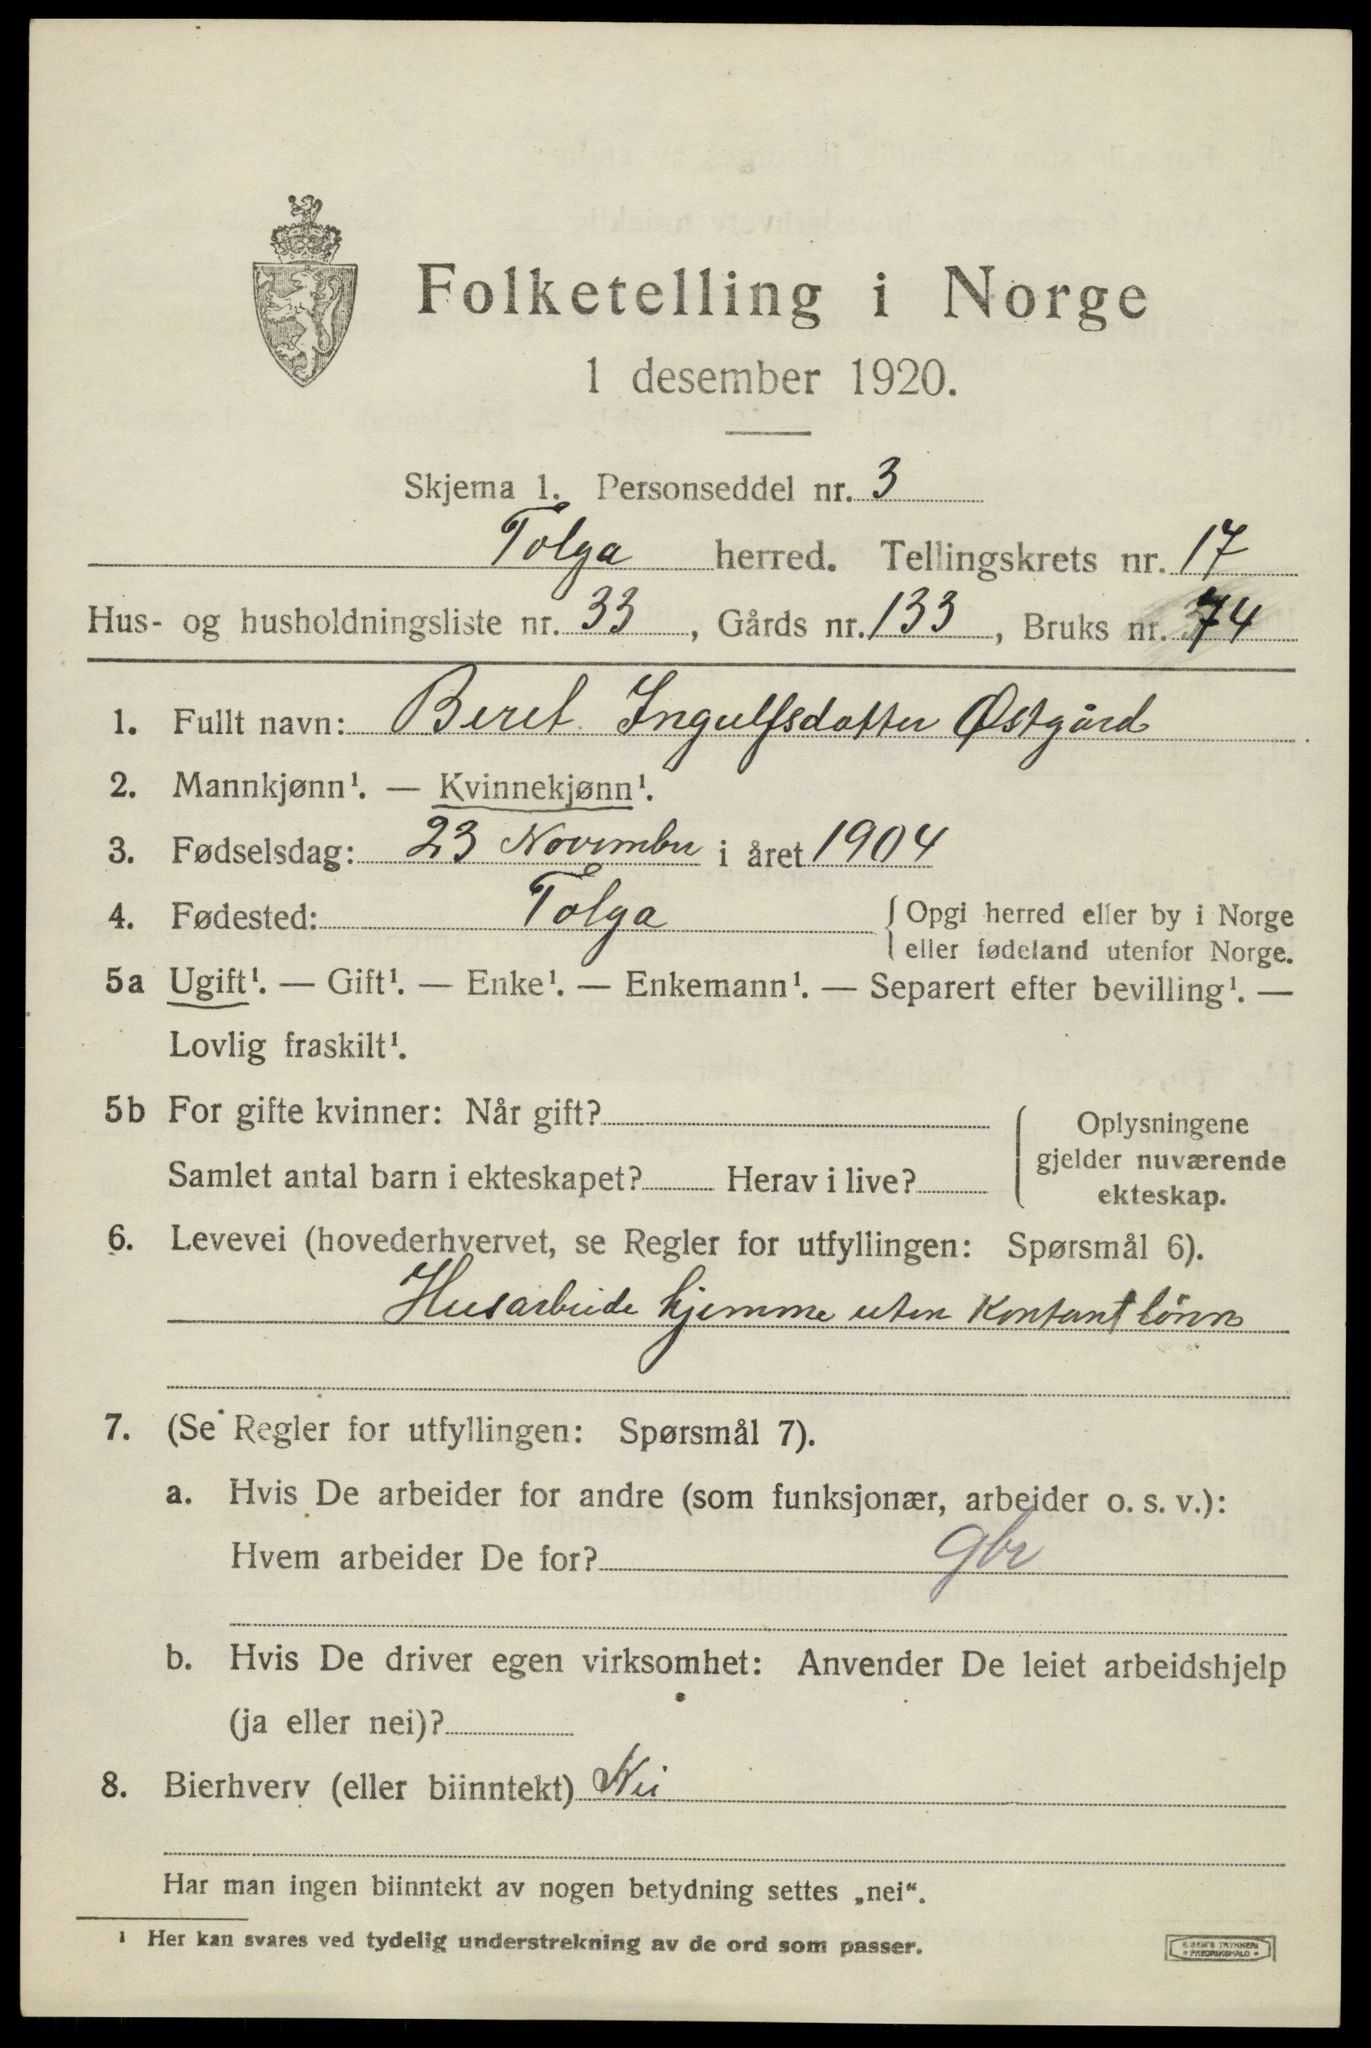 Folketelling i Norge
1 desember 1920.
Skjema 1. Personseddel nr. 3
Tolga herred. Tellingskrets nr. 17
Hus- og husholdningsliste nr. 33, Gårds nr. 133, Bruks nr. 74
1. Fullt navn: Beret Ingulfsdatter Østgård
2. Mannkjønn¹. — Kvinnekjønn¹.
3. Fødselsdag: 23 November i året 1904
4. Fødested: Tolga {Opgi herred eller by i Norge
eller fødeland utenfor Norge.
5a Ugift¹. — Gift¹. — Enke¹. — Enkemann¹. — Separert efter bevilling¹. —
Lovlig fraskilt¹.
5b For gifte kvinner: Når gift?
Samlet antal barn i ekteskapet? Herav i live?
Oplysningene
gjelder nuværende
ekteskap.
6. Levevei (hovederhvervet, se Regler for utfyllingen: Spørsmål 6).
Husarbeide hjemme uten Kontant lönn
7. (Se Regler for utfyllingen: Spørsmål 7).
a. Hvis De arbeider for andre (som funksjonær, arbeider o. s. v.):
Hvem arbeider De for? gbr
b. Hvis De driver egen virksomhet: Anvender De leiet arbeidshjelp
(ja eller nei)?
8. Bierhverv (eller biinntekt) Nei
Har man ingen biinntekt av nogen betydning settes „nei“.
¹ Her kan svares ved tydelig understrekning av de ord som passer.
E. SEM'S TRYKKERI
* FREDRIKSHALD *